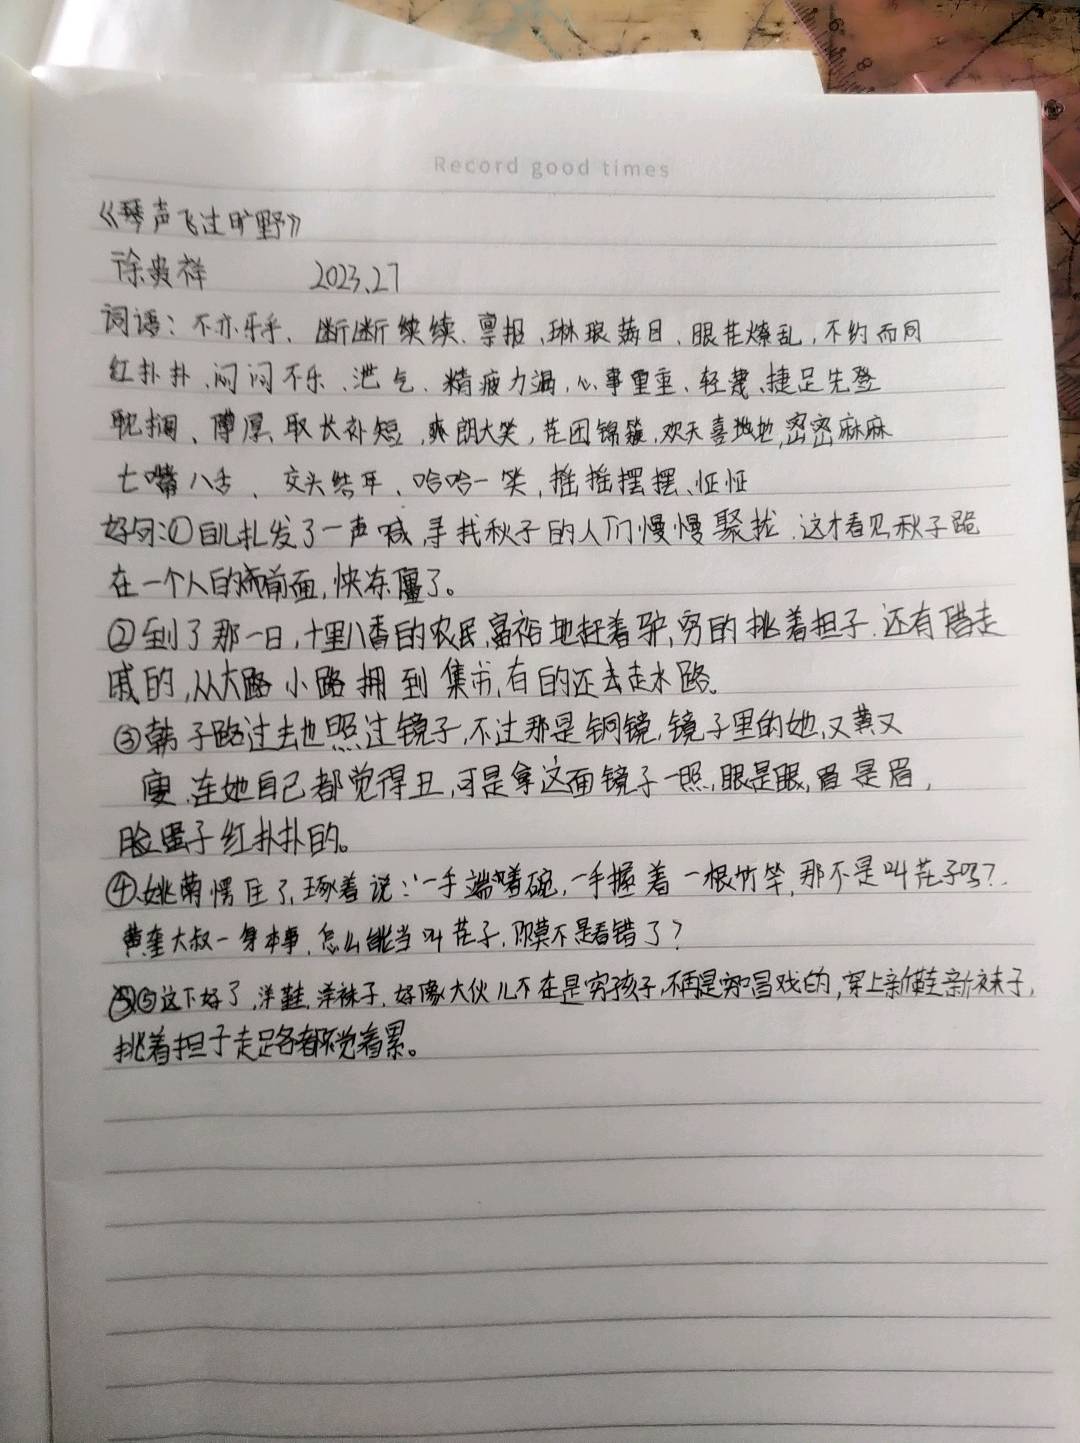 Record good times
《琴声飞过旷野》
徐贵祥 2023.2.7
词语：不亦乐乎、断断续续、禀报、琳琅满目、眼花缭乱，不约而同
红扑扑、闷闷不乐、泄气、精疲力竭，心事重重、轻蔑、捷足先登
耽搁、厚，取长补短，爽朗大笑，花团锦簇，欢天喜地地，密密麻麻
七嘴八舌、交头结耳、哈哈一笑，摇摇摆摆、怔怔
好句：①自儿扎发了一声喊，寻找秋子的人们慢慢聚拢．这才看见秋子跪
在一个人的前面，快冻僵了。
②到了那一日，十里八香的农民，富裕地赶着驴，穷的挑着担子．还有借走
戚的，从大路小路拥到集市，有的还去走水路。
③韩子路过去也照过镜子，不过那是铜镜，镜子里的她，又黄又
瘦．连她自己都觉得丑，可是拿这面镜子一照，眼是眼，眉是眉，
脸蛋子红扑扑的。
④姚菊愣住了，琢着说：“一手端着碗，一手握着一根竹竿，那不是叫花子吗？
黄奎大叔一身本事，怎么能当叫花子，莫不是看错了？
⑤这下好了，洋鞋，洋袜子，好像大伙儿不在是穷孩子，不再是唱戏的，穿上新鞋新袜子，
挑着担子走路都不觉着累。
6
8